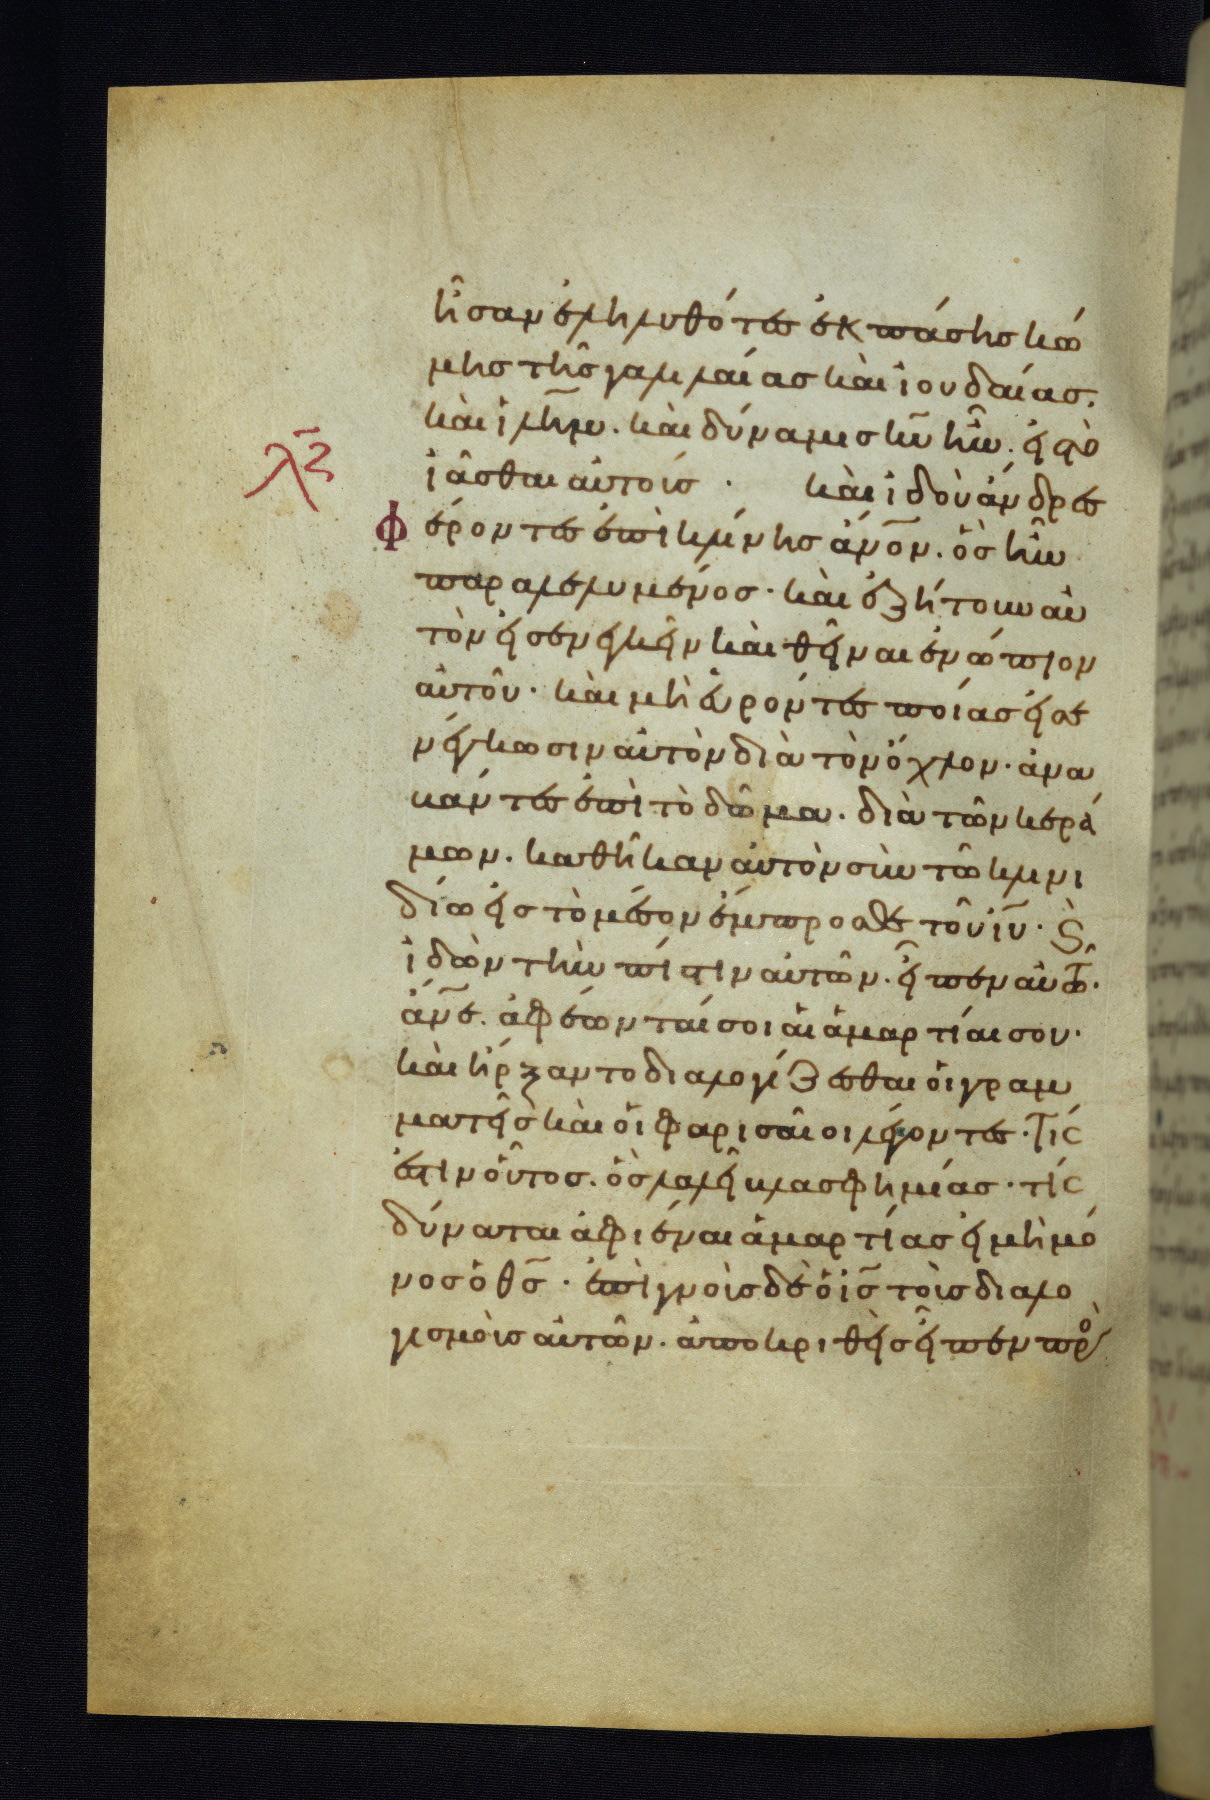 ἦσαν ἐληλυθότες ἐκ πάσης κώ
μης τῆς γαλλαίας καὶ ἰουδαίας.
καὶ ἰλῆμ. καὶ δύναμις κ̄υ ἦν. εἰς τὸ
λς ἰᾶσθαι αὐτοίς · καὶ ἰδοὺ ἄνδρες
φέροντες ἐπὶ κλίνης ἄν̄ον. ὃς ἦν
παραλελυμένος · καὶ ἐζήτουν αὐ
τὸν εἰσενεγκεῖν καὶ θεῖναι ἐνώπιον
αὐτοῦ · καὶ μὴ εὑρόντες ποίας εἰσε
νέγκωσιν αὐτὸν διὰ τὸν ὄχλον · ἀνα
βάντες ἐπὶ τὸ δῶμα. διὰ τῶν κερά
μων. καθῆκαν αὐτὸν σὺν τῶ κλινι
δίω εἰς τὸ μέσον ἔμπροσθε τοῦ ἰ̄υ · ϛ̀
ἰδὼν τὴν πίστιν αὐτῶν. εἶπεν αὐτῶ·
ἄν̄ε. ἀφέωνταί σοι αἱ ἁμαρτίαι σου·
καὶ ἤρξαντο διαλογίζεσθαι οἱ γραμ
ματεῖς καὶ οἱ φαρισαῖοι λέγοντες · τίς
ἐστιν οὗτος. ὃς λαλεῖ βλασφημίας · τίς
δύναται ἀφιέναι ἁμαρτίας εἰ μὴ μό
νος ὁ θ̄ς · ἐπιγνοὺς δὲ ὁ ἰ̄ς τοὺς διαλο
γισμοὺς αὐτῶν. ἀποκριθεὶς εἶπεν πρὸ